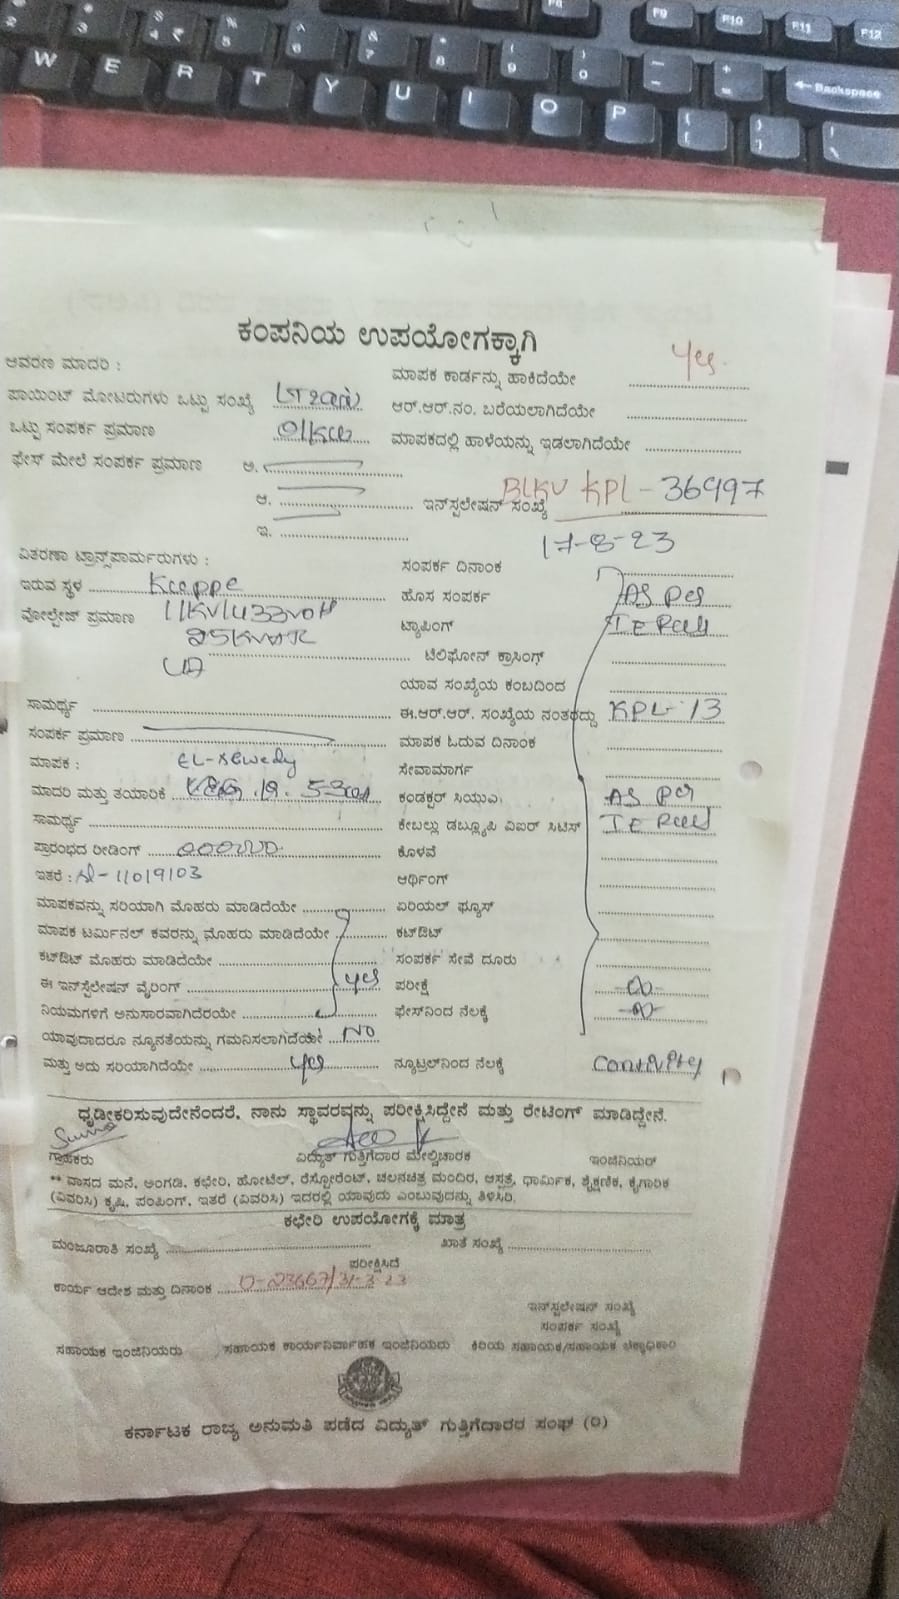 ಕಂಪನಿಯ ಉಪಯೋಗಕ್ಕಾಗಿ
ಆವರಣ ಮಾದರಿ :
ಮಾಪಕ ಕಾರ್ಡನ್ನು ಹಾಕಿದೆಯೇ
ಪಾಯಿಂಟ್ ಮೋಟರುಗಳು ಒಟ್ಟು ಸಂಖ್ಯೆ
ಆರ್.ಆರ್.ನಂ. ಬರೆಯಲಾಗಿದೆಯೇ
ಒಟ್ಟು ಸಂಪರ್ಕ ಪ್ರಮಾಣ
ಮಾಪಕದಲ್ಲಿ ಹಾಳೆಯನ್ನು ಇಡಲಾಗಿದೆಯೇ
ಫೇಸ್ ಮೇಲೆ ಸಂಪರ್ಕ ಪ್ರಮಾಣ ಅ.
ಆ. ಇನ್‌ಸ್ಟಲೇಷನ್ ಸಂಖ್ಯೆ BLKU KPL - 36497
ಇ.
17-8-23
ವಿತರಣಾ ಟ್ರಾನ್ಸ್‌ಫಾರ್ಮರುಗಳು : ಸಂಪರ್ಕ ದಿನಾಂಕ
ಇರುವ ಸ್ಥಳ Kceppe ಹೊಸ ಸಂಪರ್ಕ AS per
ವೋಲ್ಟೇಜ್ ಪ್ರಮಾಣ 11KV/433volt ಟ್ಯಾಪಿಂಗ್ IE Rules
25KVA ಟೆಲಿಫೋನ್ ಕ್ರಾಸಿಂಗ್
ಯಾವ ಸಂಖ್ಯೆಯ ಕಂಬದಿಂದ
ಸಾಮರ್ಥ್ಯ ಈ.ಆರ್.ಆರ್. ಸಂಖ್ಯೆಯ ನಂತರದ್ದು KPL-13
ಸಂಪರ್ಕ ಪ್ರಮಾಣ ಮಾಪಕ ಓದುವ ದಿನಾಂಕ
ಮಾಪಕ : EL-Sewedy ಸೇವಾಮಾರ್ಗ
ಮಾದರಿ ಮತ್ತು ತಯಾರಿಕೆ ಕಂಡಕ್ಟರ್ ಸಿಯುಎ AS per
ಸಾಮರ್ಥ್ಯ ಕೇಬಲ್ಲು ಡಬ್ಲ್ಯೂಪಿ ವಿಐಆರ್ ಸಿಟಿಸ್ IE Rules
ಪ್ರಾರಂಭದ ರೀಡಿಂಗ್ ಕೊಳವೆ
ಇತರೆ : Sl-11019103 ಆರ್ಥಿಂಗ್
ಮಾಪಕವನ್ನು ಸರಿಯಾಗಿ ಮೊಹರು ಮಾಡಿದೆಯೇ ಏರಿಯಲ್ ಫ್ಯೂಸ್
ಮಾಪಕ ಟರ್ಮಿನಲ್ ಕವರನ್ನು ಮೊಹರು ಮಾಡಿದೆಯೇ ಕಟ್‌ಔಟ್
ಕಟ್‌ಔಟ್ ಮೊಹರು ಮಾಡಿದೆಯೇ ಸಂಪರ್ಕ ಸೇವೆ ದೂರು
ಈ ಇನ್‌ಸ್ಟಲೇಷನ್ ವೈರಿಂಗ್ yes ಪರೀಕ್ಷೆ -∞-
ನಿಯಮಗಳಿಗೆ ಅನುಸಾರವಾಗಿದೆರಯೇ ಫೇಸ್‌ನಿಂದ ನೆಲಕ್ಕೆ -∞-
ಯಾವುದಾದರೂ ನ್ಯೂನತೆಯನ್ನು ಗಮನಿಸಲಾಗಿದೆಯೇ NO
ಮತ್ತು ಅದು ಸರಿಯಾಗಿದೆಯೇ yes ನ್ಯೂಟ್ರಲ್‌ನಿಂದ ನೆಲಕ್ಕೆ
ಧೃಡೀಕರಿಸುವುದೇನೆಂದರೆ, ನಾನು ಸ್ಥಾವರವನ್ನು ಪರೀಕ್ಷಿಸಿದ್ದೇನೆ ಮತ್ತು ರೇಟಿಂಗ್ ಮಾಡಿದ್ದೇನೆ.
ಗ್ರಾಹಕರು ವಿದ್ಯುತ್ ಗುತ್ತಿಗೆದಾರ ಮೇಲ್ವಿಚಾರಕ ಇಂಜಿನಿಯರ್
** ವಾಸದ ಮನೆ, ಅಂಗಡಿ, ಕಛೇರಿ, ಹೋಟೆಲ್, ರೆಸ್ಟೋರೆಂಟ್, ಚಲನಚಿತ್ರ ಮಂದಿರ, ಆಸ್ಪತ್ರೆ, ಧಾರ್ಮಿಕ, ಶೈಕ್ಷಣಿಕ, ಕೈಗಾರಿಕ
(ವಿವರಿಸಿ) ಕೃಷಿ, ಪಂಪಿಂಗ್, ಇತರೆ (ವಿವರಿಸಿ) ಇದರಲ್ಲಿ ಯಾವುದು ಎಂಬುವುದನ್ನು ತಿಳಿಸಿರಿ.
ಕಛೇರಿ ಉಪಯೋಗಕ್ಕೆ ಮಾತ್ರ
ಮಂಜೂರಾತಿ ಸಂಖ್ಯೆ ಖಾತೆ ಸಂಖ್ಯೆ
ಪರೀಕ್ಷಿಸಿದೆ
ಕಾರ್ಯ ಆದೇಶ ಮತ್ತು ದಿನಾಂಕ 0-23667/31-3-23
ಇನ್‌ಸ್ಟಲೇಷನ್ ಸಂಖ್ಯೆ
ಸಂಪರ್ಕ ಸಂಖ್ಯೆ
ಸಹಾಯಕ ಇಂಜಿನಿಯರು ಸಹಾಯಕ ಕಾರ್ಯನಿರ್ವಾಹಕ ಇಂಜಿನಿಯರು ಕಿರಿಯ ಸಹಾಯಕ/ಸಹಾಯಕ ಲೆಕ್ಕಾಧಿಕಾರಿ
ಕರ್ನಾಟಕ ರಾಜ್ಯ ಅನುಮತಿ ಪಡೆದ ವಿದ್ಯುತ್ ಗುತ್ತಿಗೆದಾರರ ಸಂಘ (ರಿ)